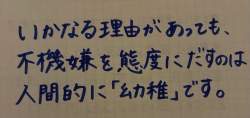 いかなる理由があっても、
不機嫌を態度にだすのは
人間的に「幼稚」です。